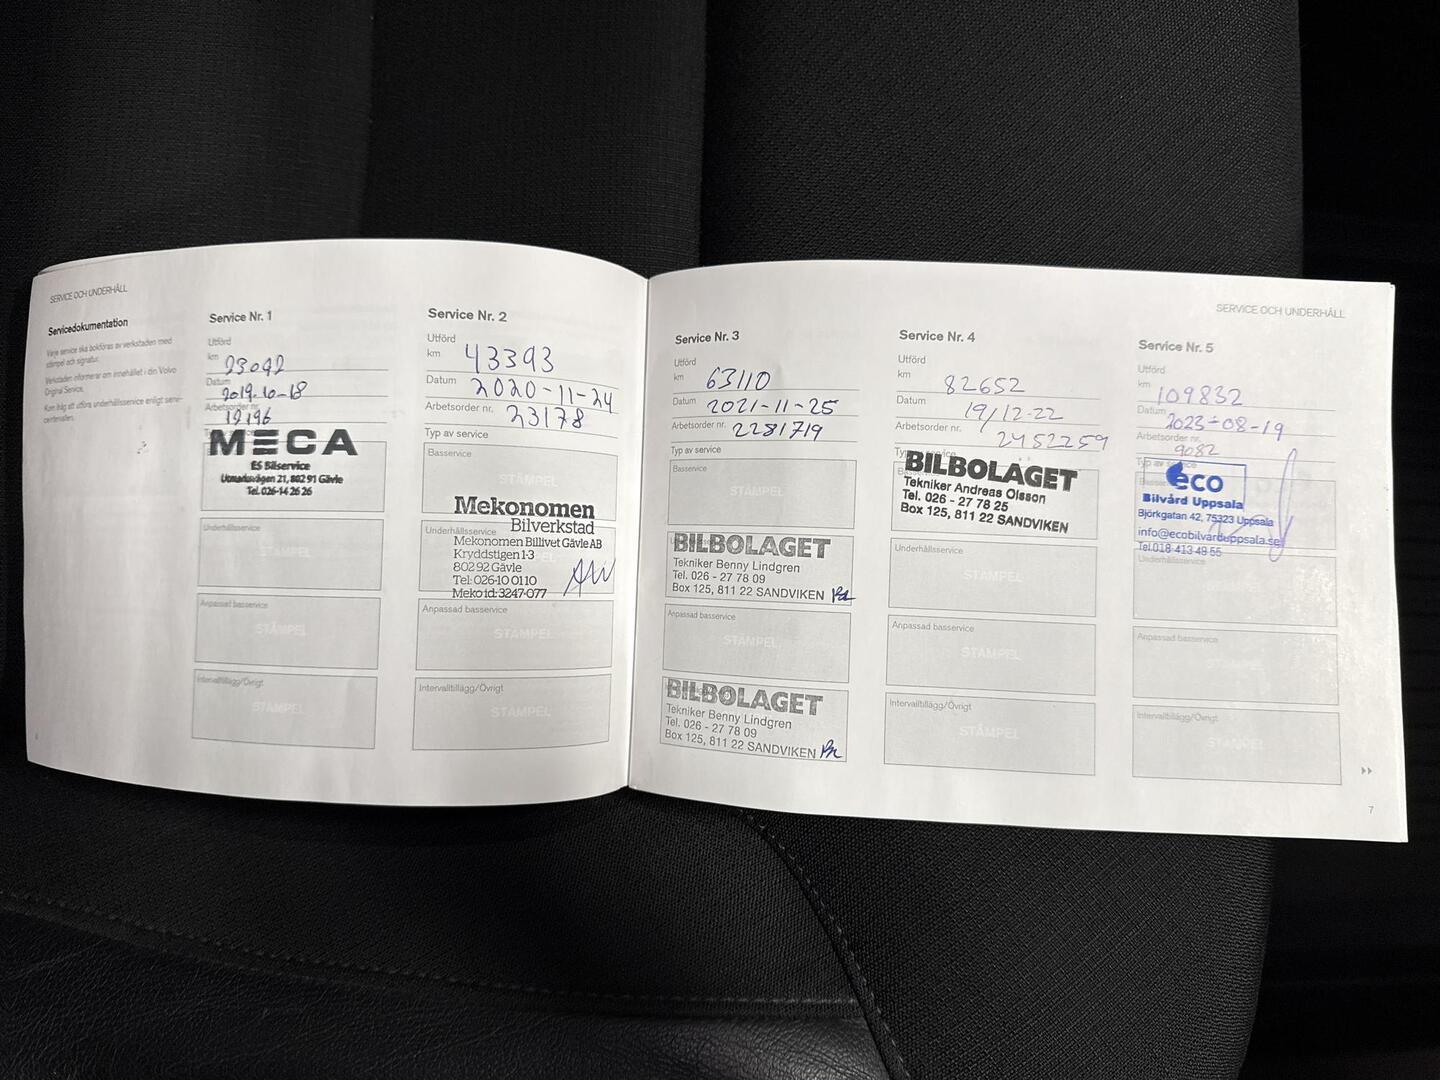 SERVICE OCH UNDERHÅLL
Servicedokumentation
Varje service ska bokföras av verkstaden med
stämpel och signatur.
Verkstaden informerar om innehållet i din Volvo
Original Service.
Kom ihåg att utföra underhållsservice enligt servi-
Service Nr. 1
Utförd
km 23092
Datum 2019.10-18
Arbetsorder nr.
MECA
ES Bilservice
Utmarksvägen 21, 802 91 Gävle
Tel. 026-14 26 26
Underhållsservice
STÄMPEL
Anpassad basservice
STÄMPEL
Intervalltillägg/Övrigt
STÄMPEL
Service Nr. 2
Utförd
km 43393
Datum 2020-11-24
Arbetsorder nr. 23178
Typ av service
Basservice
STÄMPEL
Mekonomen
Bilverkstad
Underhållsservice
Mekonomen Billivet Gävle AB
Kryddstigen 1-3
802 92 Gävle
Tel: 026-10 01 10
Meko id: 3247-077
Anpassad basservice
STÄMPEL
Intervalltillägg/Övrigt
STÄMPEL
SERVICE OCH UNDERHÅLL
Service Nr. 3
Utförd
km 63110
Datum 2021-11-25
Arbetsorder nr. 2281719
Typ av service
Basservice
STÄMPEL
BILBOLAGET
Tekniker Benny Lindgren
Tel. 026 - 27 78 09
Box 125, 811 22 SANDVIKEN
Anpassad basservice
STÄMPEL
BILBOLAGET
Tekniker Benny Lindgren
Tel. 026 - 27 78 09
Box 125, 811 22 SANDVIKEN
Service Nr. 4
Utförd
km 82652
Datum 19/12-22
Arbetsorder nr. 2452259
BILBOLAGET
Tekniker Andreas Olsson
Tel. 026 - 27 78 25
Box 125, 811 22 SANDVIKEN
Underhållsservice
STÄMPEL
Anpassad basservice
STÄMPEL
Intervalltillägg/Övrigt
STÄMPEL
Service Nr. 5
Utförd
km 109832
Datum 2023-08-19
Arbetsorder nr.
9082
Typ av service
eco
Bilvård Uppsala
Björkgatan 42, 75323 Uppsala
info@ecobilvarduppsala.se
Tel.018-413 49 55
Underhållsservice
Anpassad basservice
STÄMPEL
Intervalltillägg/Övrigt
STÄMPEL
7